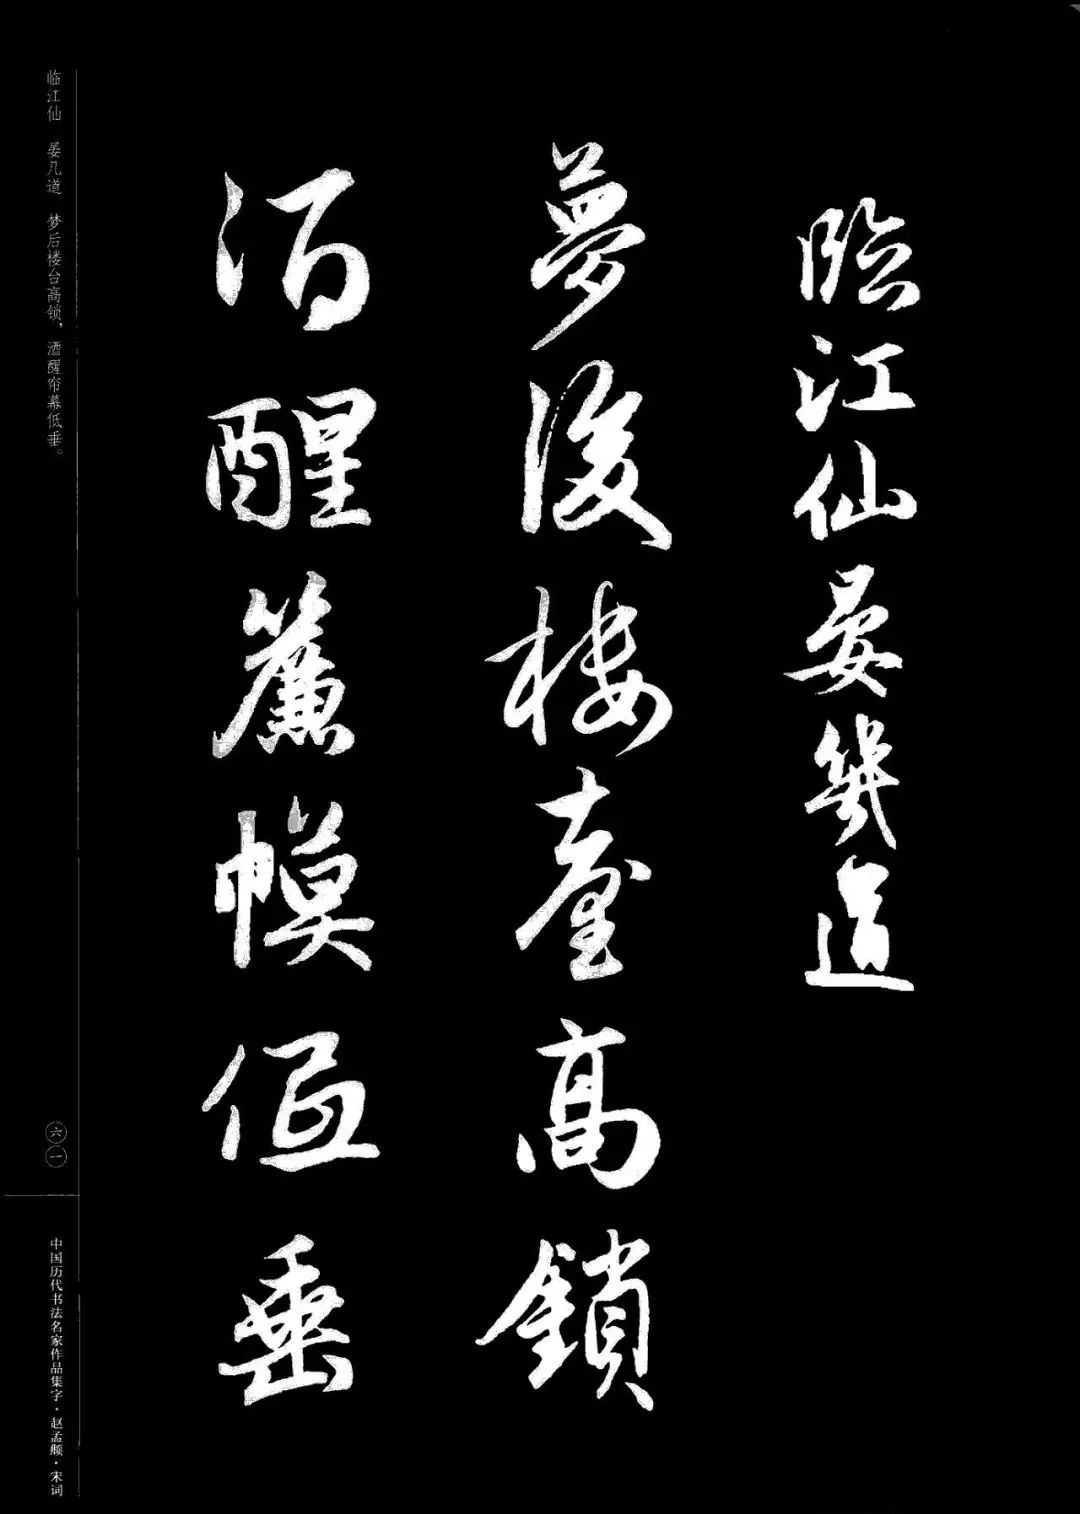 臨江仙晏幾道
夢後樓臺高鎖
酒醒簾幙低垂
临江仙 晏几道 梦后楼台高锁，酒醒帘幕低垂。
六一
中国历代书法名家作品集字·赵孟頫·宋词